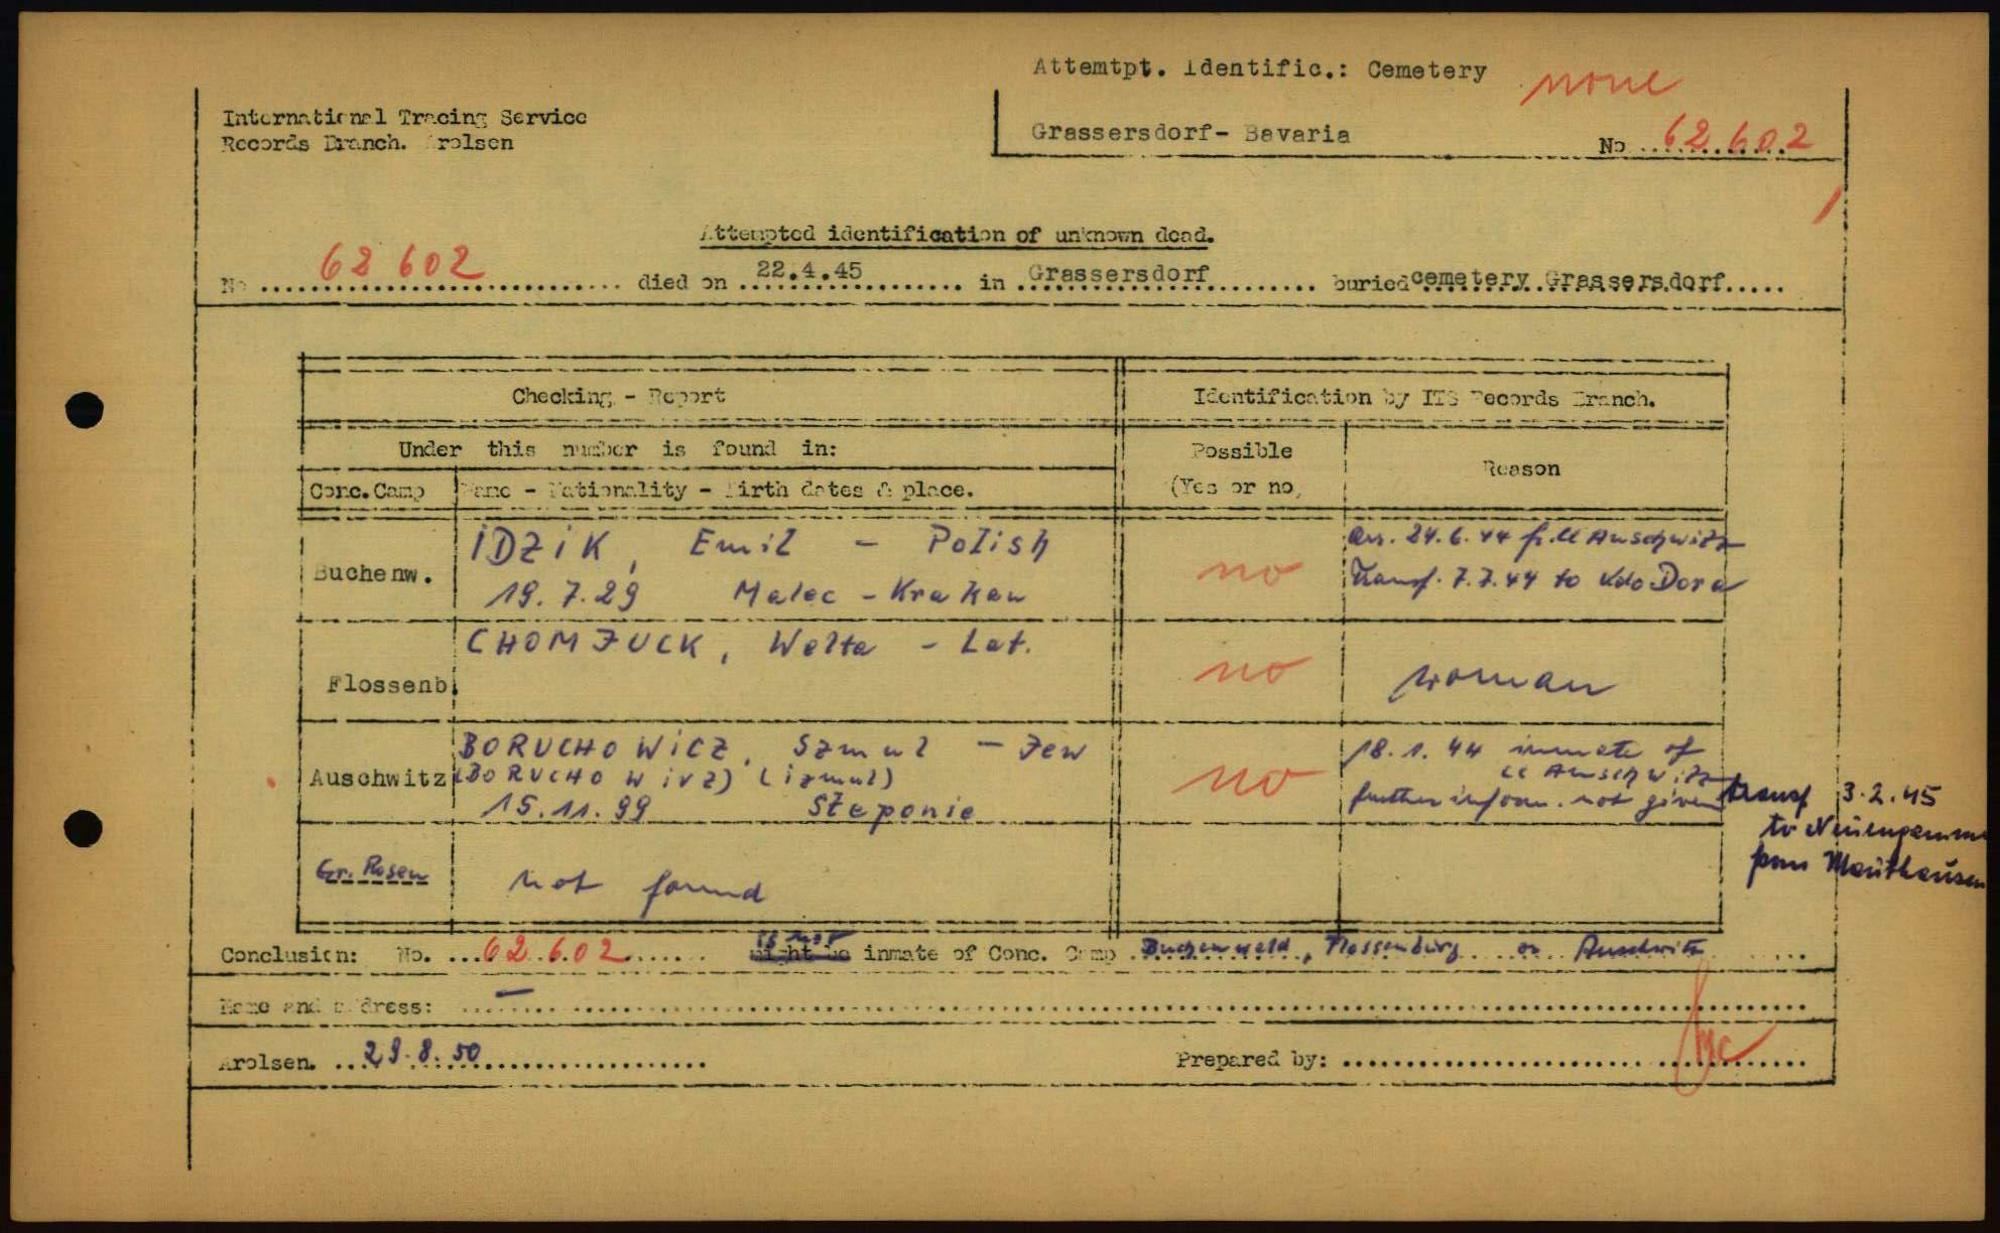 Attemtpt. Identific.: Cemetery none
International Tracing Service
Records Branch. Arolsen
Grassersdorf- Bavaria
No ..62.602
Attempted identification of unknown dead.
No 62 602 died on 22.4.45 in Grassersdorf buried cemetery Grassersdorf
Checking - Report
Identification by ITS Records Branch.
Under this number is found in:
Possible
(Yes or no)
Reason
Conc.Camp
Name - Nationality - Birth dates & place.
Buchenw.
IDZIK, Emil - Polish
19.7.29 Malec - Krakau
no
arr. 24.6.44 fr. CC Auschwitz
transf. 7.7.44 to Kdo Dora
Flossenb.
CHOMJUCK, Welta - Lat.
no
woman
Auschwitz
BORUCHOWICZ, Szmul - Jew
(BORUCHOWIVZ) (izmul)
15.11.99 Steponie
no
18.1.44 inmate of
CC Auschwitz
further inform. not given
transf 3.2.45
to Neuengamme
from Mauthausen
Gr. Rosen
not found
Conclusion: No. 62.602 is not might be inmate of Conc. Camp Buchenwald, Flossenbürg or Auschwitz
Name and address: —
Arolsen. 29.8.50
Prepared by: